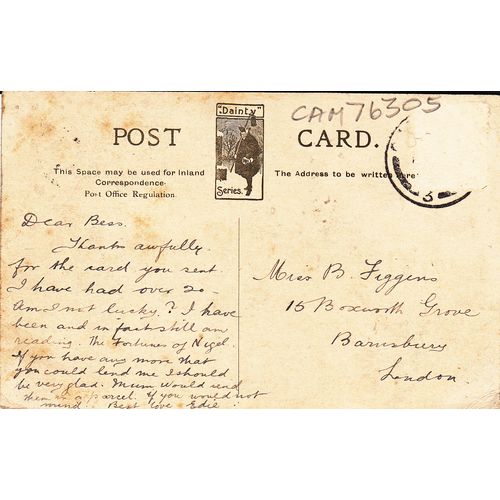 CAM76305
"Dainty"
Series.
POST CARD.
This Space may be used for Inland
Correspondence.
Post Office Regulation.
The Address to be written here
Dear Bess.
Thanks awfully.
for the card you sent
I have had over 20 -
Am I not lucky? I have
been and in fact still am
reading. The Fortunes of Nigel.
If you have any more that
you could lend me I should
be very glad. Mum would send
them in a parcel. If you would not
mind. Best love Edie.
Miss B. Figgins
15 Boxworth Grove
Barnsbury
London.